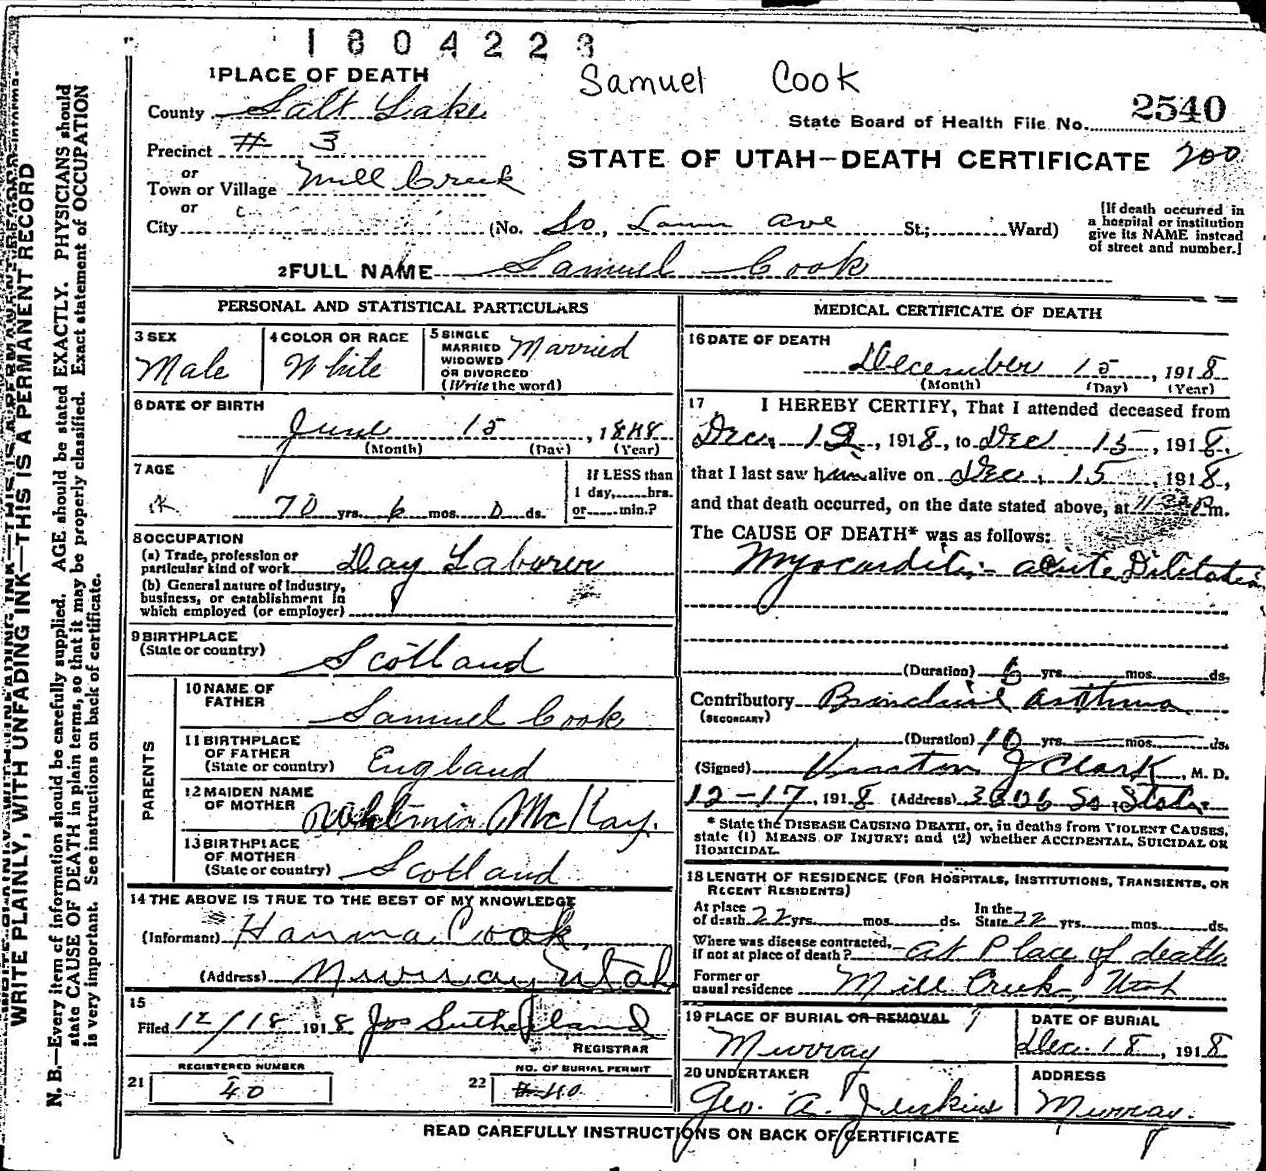 1804223
Samuel Cook
1 PLACE OF DEATH
County Salt Lake
State Board of Health File No. 2540
Precinct # 3
STATE OF UTAH—DEATH CERTIFICATE 200
or
Town or Village Mill Creek
or
City (No. So, Ave St; Ward)
[If death occurred in a hospital or institution give its NAME instead of street and number.]
2 FULL NAME Samuel Cook
PERSONAL AND STATISTICAL PARTICULARS
3 SEX Male
4 COLOR OR RACE White
5 SINGLE MARRIED WIDOWED OR DIVORCED (Write the word) Married
6 DATE OF BIRTH
June 15, 1848
(Month) (Day) (Year)
7 AGE
70 yrs. 6 mos. 0 ds.
If LESS than 1 day,......hrs. or......min.?
8 OCCUPATION
(a) Trade, profession or particular kind of work Day Laborer
(b) General nature of Industry, business, or establishment in which employed (or employer)
9 BIRTHPLACE
(State or country) Scotland
PARENTS
10 NAME OF FATHER Samuel Cook
11 BIRTHPLACE OF FATHER (State or country) England
12 MAIDEN NAME OF MOTHER McKay.
13 BIRTHPLACE OF MOTHER (State or country) Scotland
14 THE ABOVE IS TRUE TO THE BEST OF MY KNOWLEDGE
(Informant) Hanna Cook,
(Address) Murray Utah
15
Filed 12/18 1918 Jos Sutherland
REGISTRAR
REGISTERED NUMBER
21 40
NO. OF BURIAL PERMIT
22 #40
MEDICAL CERTIFICATE OF DEATH
16 DATE OF DEATH
December 15, 1918
(Month) (Day) (Year)
17 I HEREBY CERTIFY, That I attended deceased from
Dec, 12, 1918, to Dec 15, 1918,
that I last saw him alive on Dec, 15 1918,
and that death occurred, on the date stated above, at P.m.
The CAUSE OF DEATH* was as follows:
Myocarditis- acute Dilitation
(Duration) 6 yrs. mos. ds.
Contributory (SECONDARY) Bronchial asthma
(Duration) 10 yrs. mos. ds.
(Signed) J Clark, M. D.
12-17, 1918 (Address) 3306 So State
* State the DISEASE CAUSING DEATH, or, in deaths from VIOLENT CAUSES, state (1) MEANS OF INJURY; and (2) whether ACCIDENTAL, SUICIDAL OR HOMICIDAL.
18 LENGTH OF RESIDENCE (FOR HOSPITALS, INSTITUTIONS, TRANSIENTS, OR RECENT RESIDENTS)
At place of death 22 yrs. mos. ds. In the State 22 yrs. mos. ds.
Where was disease contracted, if not at place of death? at Place of death
Former or usual residence Mill Creek, Utah
19 PLACE OF BURIAL OR REMOVAL
Murray
DATE OF BURIAL
Dec. 18, 1918
20 UNDERTAKER
Geo. A. Jenkins
ADDRESS
Murray.
READ CAREFULLY INSTRUCTIONS ON BACK OF CERTIFICATE
WRITE PLAINLY, WITH UNFADING INK—THIS IS A PERMANENT RECORD
N. B.—Every item of information should be carefully supplied. AGE should be stated EXACTLY. PHYSICIANS should
state CAUSE OF DEATH in plain terms, so that it may be properly classified. Exact statement of OCCUPATION
is very important. See instructions on back of certificate.